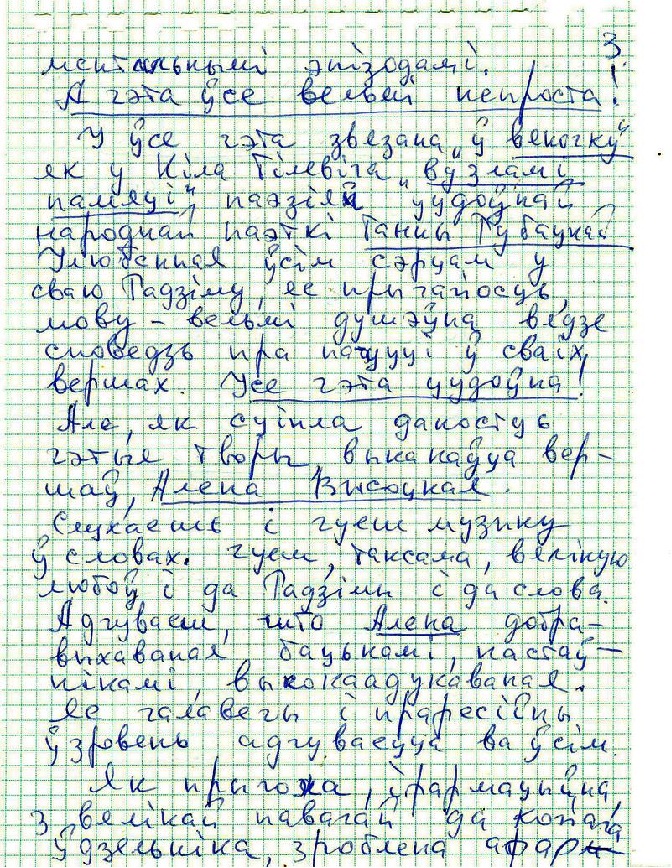 3.
ментальнымі эпізодамі.
А гэта ўсе вельмі непроста!
У ўсе гэта звязана ў „веночку"
як у Ніла Гілевіча „вузламі
памяці", паэзіяй цудоўнай
народнай паэткі Ганны Тубаўнай
Улюбенная ўсім сэрцам у
сваю Радзіму, яе прыгажосць,
мову – вельмі душэўна вядзе
споведзь пра пачуцці ў сваіх
вершах. Усе гэта цудоўна!
Але, як суікла даностуь
гэтыя творы, выканаўца вер-
шаў, Алена Высоцкая.
Слухаешь і чуеш музыку
ў словах. Чуем, таксама, вялікую
любоў і да Радзімы і да слова.
Адчуваеш, што Алена добра-
выхаваная бацькамі, настаў-
нікамі, высокаадукаваная.
Яе чалавечы і прафесійны
ўзровень адчуваецца ва ўсім.
Як прыгожа, інфармацыйна,
з вялікай павагай да кожнага
ўдзельніка, зроблена афар